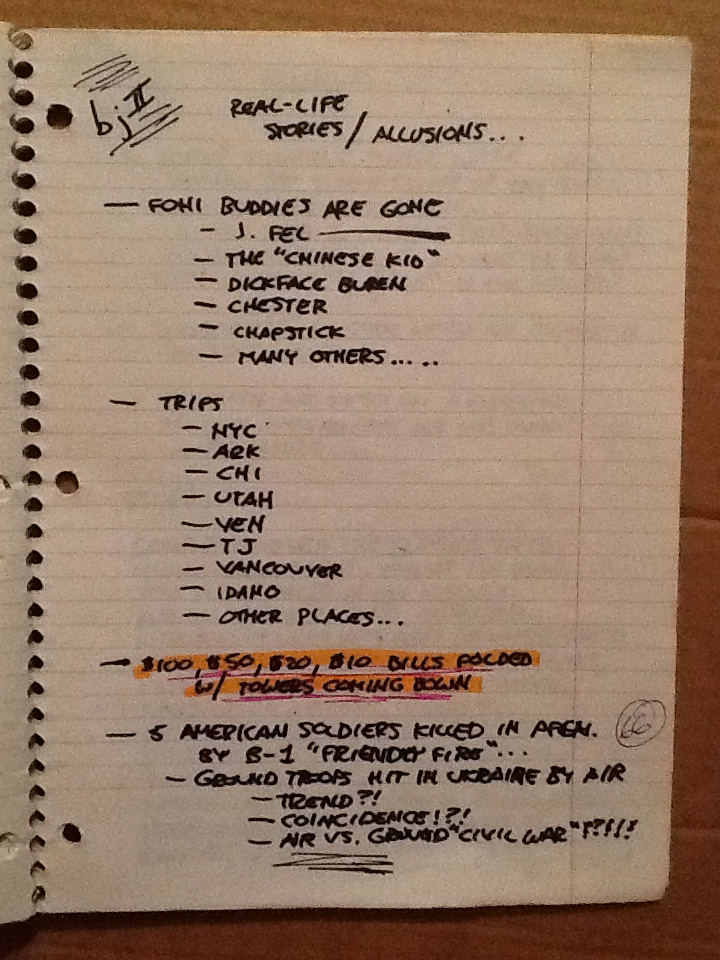 bj II
REAL-LIFE
STORIES / ALLUSIONS...
— FOMI BUDDIES ARE GONE
- J. FEL
- THE "CHINESE KID"
- DICKFACE BUREN
- CHESTER
- CHAPSTICK
- MANY OTHERS.....
— TRIPS
- NYC
- ARK
- CHI
- UTAH
- VEN
- TJ
- VANCOUVER
- IDAHO
- OTHER PLACES...
— $100, $50, $20, $10 BILLS FOLDED
W/ TOWERS COMING DOWN
— 5 AMERICAN SOLDIERS KILLED IN AFGN.
BY B-1 "FRIENDLY FIRE"...
- GROUND TROOPS HIT IN UKRAINE BY AIR
- TREND?!
- COINCIDENCE!?!
- AIR VS. GROUND "CIVIL WAR"!?!!!
66